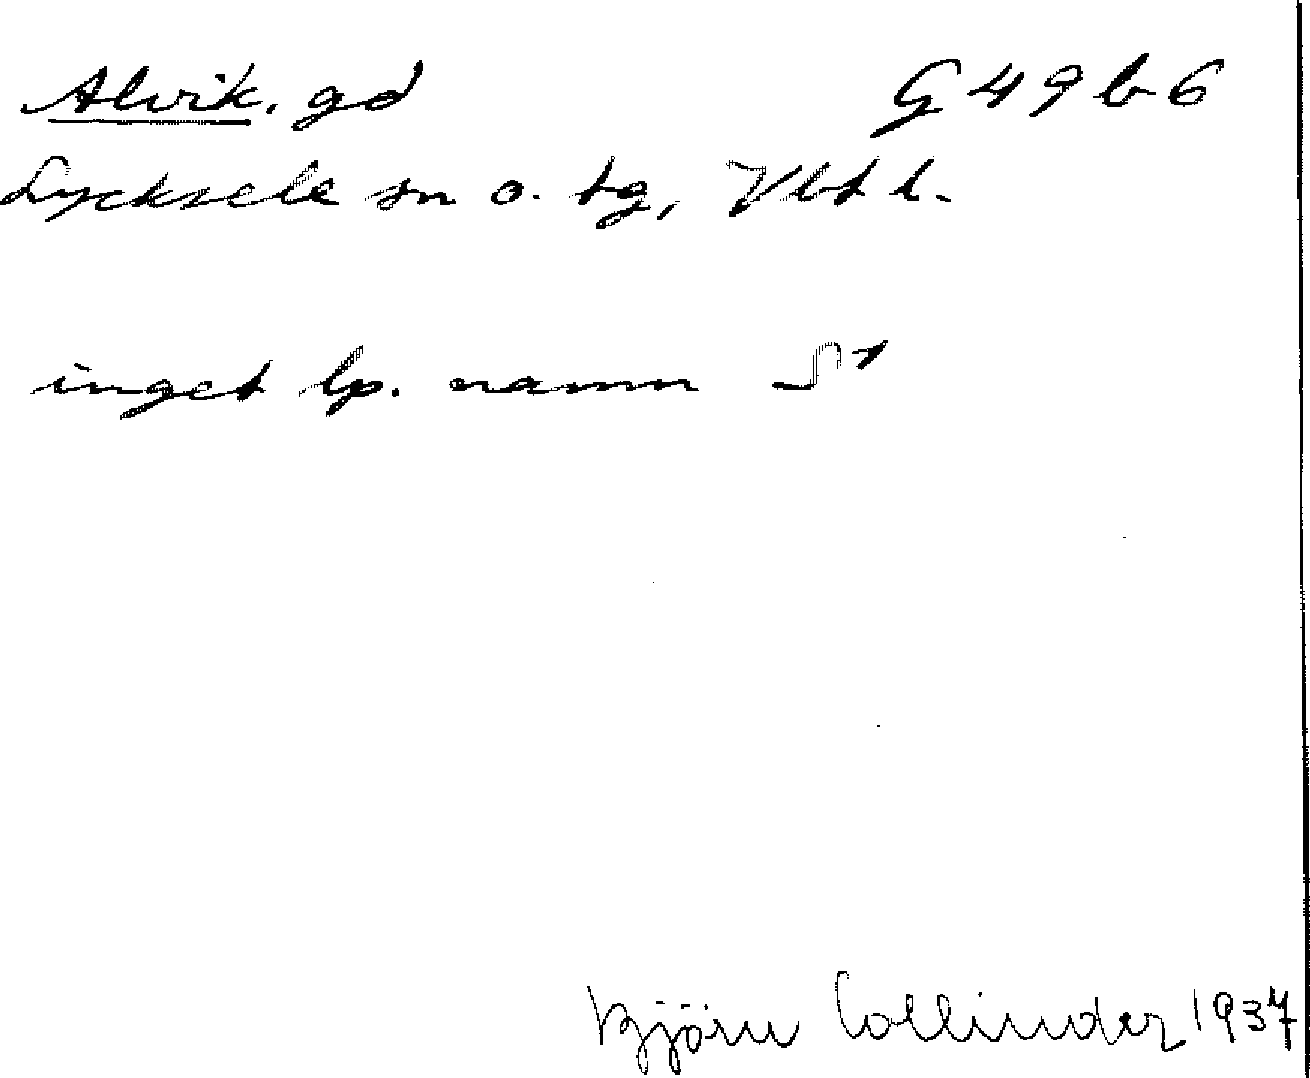 Alvik, gd G 49 b 6
Lycksele sn o. tg, Vbt l.
inget lp. namn
Björn Collinder 1937